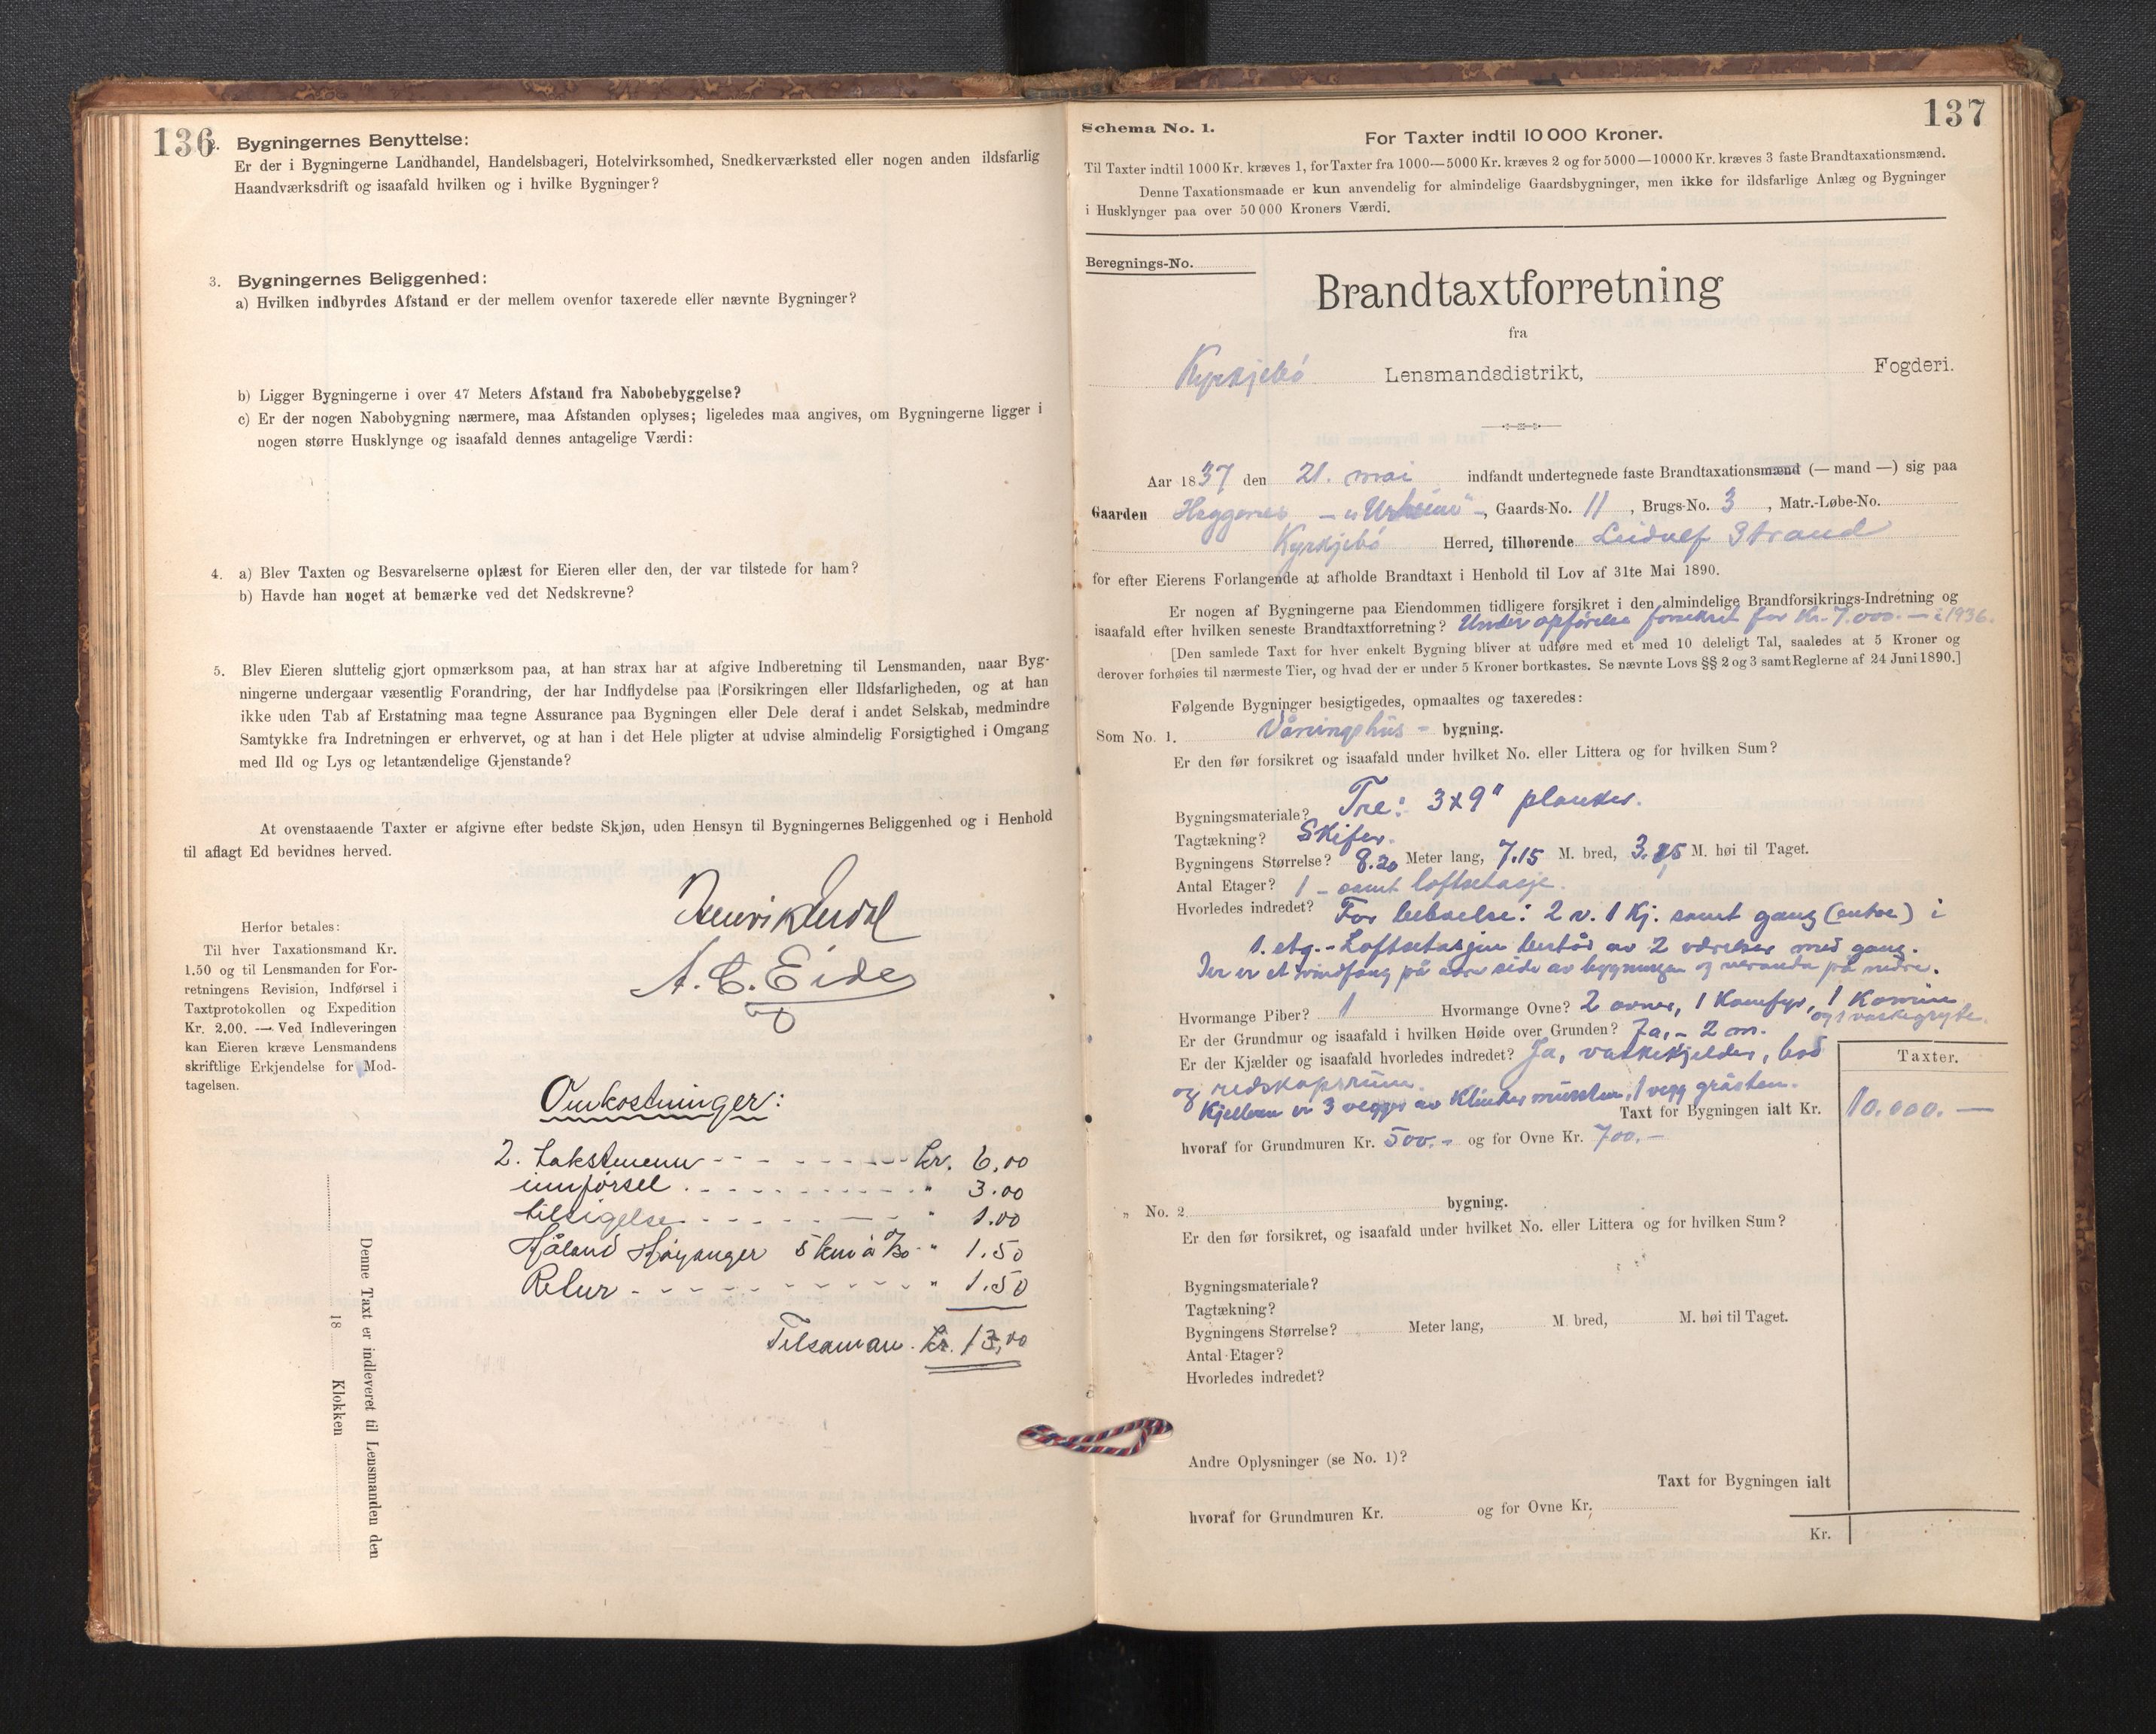 136
2. Bygningernes Benyttelse:
Er der i Bygningerne Landhandel, Handelsbageri, Hotelvirksomhed, Snedkerværksted eller nogen anden ildsfarlig
Haandværksdrift og isaafald hvilken og i hvilke Bygninger?
3. Bygningernes Beliggenhed:
a) Hvilken indbyrdes Afstand er der mellem ovenfor taxerede eller nævnte Bygninger?
b) Ligger Bygningerne i over 47 Meters Afstand fra Nabobebyggelse?
c) Er der nogen Nabobygning nærmere, maa Afstanden oplyses; ligeledes maa angives, om Bygningerne ligger i
nogen større Husklynge og isaafald dennes antagelige Værdi:
4. a) Blev Taxten og Besvarelserne oplæst for Eieren eller den, der var tilstede for ham?
b) Havde han noget at bemærke ved det Nedskrevne?
5. Blev Eieren sluttelig gjort opmærksom paa, at han strax har at afgive Indberetning til Lensmanden, naar Byg-
ningerne undergaar væsentlig Forandring, der har Indflydelse paa Forsikringen eller Ildsfarligheden, og at han
ikke uden Tab af Erstatning maa tegne Assurance paa Bygningen eller Dele deraf i andet Selskab, medmindre
Samtykke fra Indretningen er erhvervet, og at han i det Hele pligter at udvise almindelig Forsigtighed i Omgang
med Ild og Lys og letantændelige Gjenstande?
At ovenstaaende Taxter er afgivne efter bedste Skjøn, uden Hensyn til Bygningernes Beliggenhed og i Henhold
til aflagt Ed bevidnes herved.
A. C. Eide
Herfor betales:
Til hver Taxationsmand Kr.
1.50 og til Lensmanden for For-
retningens Revision, Indførsel i
Taxtprotokollen og Expedition
Kr. 2.00. — Ved Indleveringen
kan Eieren kræve Lensmandens
skriftlige Erkjendelse for Mod-
tagelsen.
Omkostninger:
2. takstmenn - - - - kr. 6,00
innførsel . - - - " 3.00
tilsigelse - - - - " 1.00
Håland Høyanger 5 km à /30 - " 1.50
Retur - - - - " 1.50
Tilsaman. kr. 13,00
Denne Taxt er indleveret til Lensmanden den
18 Klokken
137
Schema No. 1.
For Taxter indtil 10 000 Kroner.
Til Taxter indtil 1000 Kr. kræves 1, for Taxter fra 1000—5000 Kr. kræves 2 og for 5000—10000 Kr. kræves 3 faste Brandtaxationsmænd.
Denne Taxationsmaade er kun anvendelig for almindelige Gaardsbygninger, men ikke for ildsfarlige Anlæg og Bygninger
i Husklynger paa over 50 000 Kroners Værdi.
Beregnings-No.
Brandtaxtforretning
fra
Kyrkjebó Lensmandsdistrikt, Fogderi.
Aar 1837 den 21. mai indfandt undertegnede faste Brandtaxationsmænd (— mand —) sig paa
Gaarden Høgganes -, Gaards-No. 11, Brugs-No. 3, Matr.-Løbe-No.
Kyrkjebó Herred, tilhørende Leidulf Strand
for efter Eierens Forlangende at afholde Brandtaxt i Henhold til Lov af 31te Mai 1890.
Er nogen af Bygningerne paa Eiendommen tidligere forsikret i den almindelige Brandforsikrings-Indretning og
isaafald efter hvilken seneste Brandtaxtforretning? Under opførelse forsikret for Kr. 7.000.— i 1936.
[Den samlede Taxt for hver enkelt Bygning bliver at udføre med et med 10 deleligt Tal, saaledes at 5 Kroner og
derover forhøies til nærmeste Tier, og hvad der er under 5 Kroner bortkastes. Se nævnte Lovs §§ 2 og 3 samt Reglerne af 24 Juni 1890.]
Følgende Bygninger besigtigedes, opmaaltes og taxeredes:
Som No. 1. Våningshus - bygning.
Er den før forsikret og isaafald under hvilket No. eller Littera og for hvilken Sum?
Bygningsmateriale? Tre: 3x9" planker.
Tagtækning? Skifer.
Bygningens Størrelse? 8.20 Meter lang, 7.15 M. bred, 3.25 M. høi til Taget.
Antal Etager? 1 - samt loftsetasje.
Hvorledes indredet? For beboelse: 2 v. 1 kj. samt gang (entre) i
1. etg. - Loftsetasjen består av 2 værelser med gang.
Der er et vindfang på øvre side av bygningen og veranda på nedre.
Hvormange Piber? 1 Hvormange Ovne? 2 ovner, 1 Komfyr, 1 Kamin
og 1 vaskegryte.
Er der Grundmur og isaafald i hvilken Høide over Grunden? Ja, - 2 m.
Er der Kjælder og isaafald hvorledes indredet? Ja, vaskekjelder, bod
og redskapsrum.
Kjelleren er 3 vegger av Klinker mursten, 1 vegg gråsten.
Taxter.
Taxt for Bygningen ialt Kr. 10.000.—
hvoraf for Grundmuren Kr. 500.- og for Ovne Kr. 700.-
" No. 2 bygning.
Er den før forsikret, og isaafald under hvilket No. eller Littera og for hvilken Sum?
Bygningsmateriale?
Tagtækning?
Bygningens Størrelse? Meter lang, M. bred, M. høi til Taget.
Antal Etager?
Hvorledes indredet?
Andre Oplysninger (se No. 1)?
Taxt for Bygningen ialt
hvoraf for Grundmuren Kr. og for Ovne Kr.
Kr.